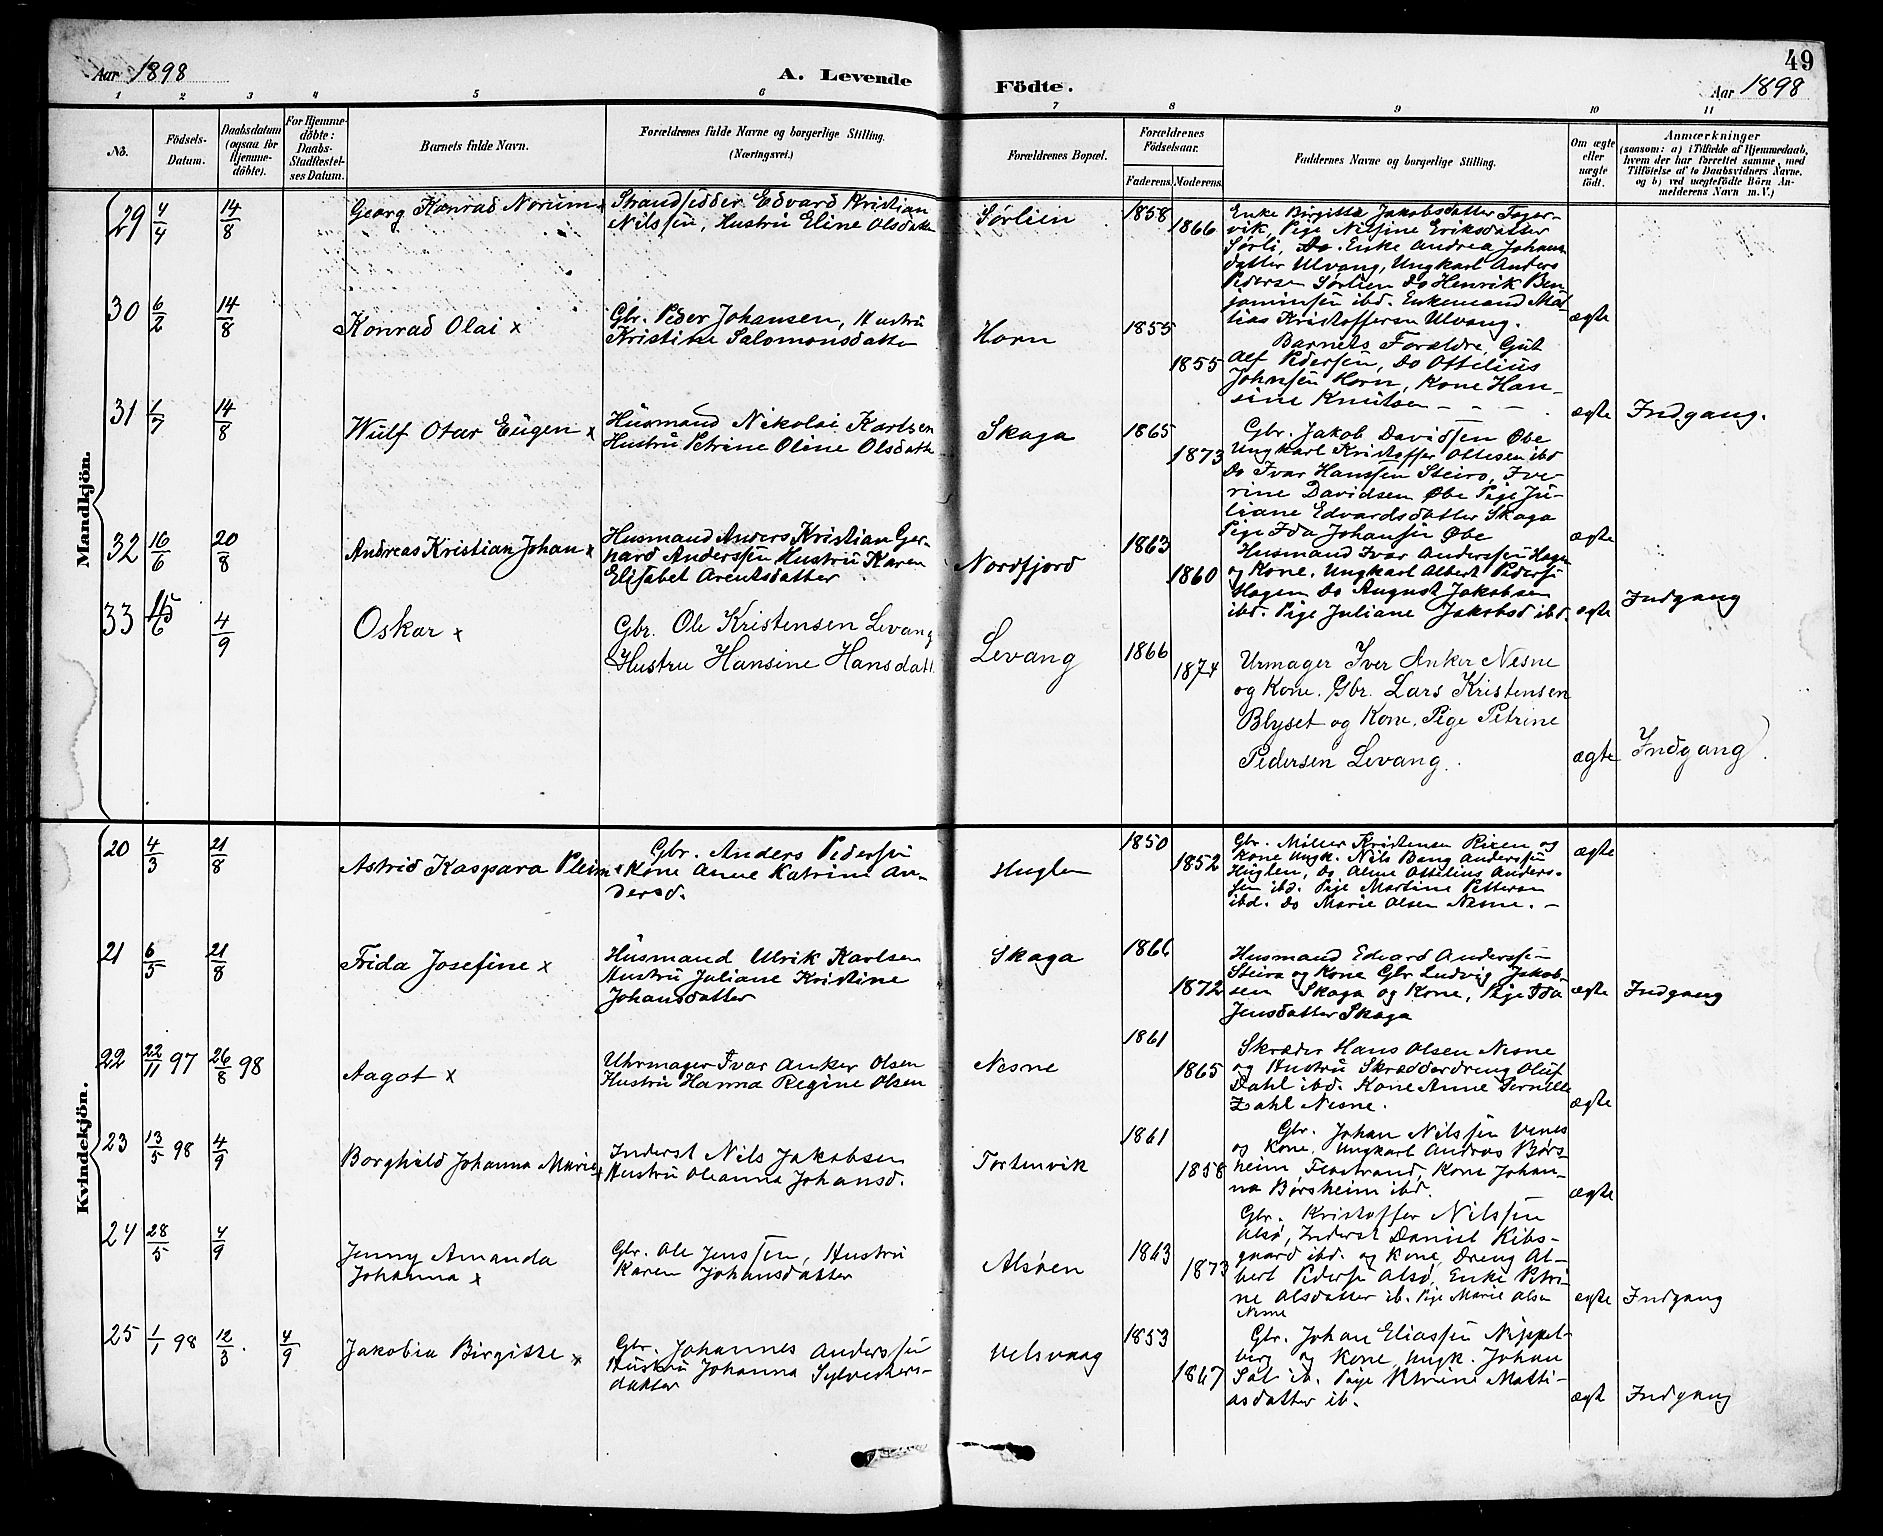 49
Aar 1898
A. Levende
Födte.
Aar 1898
1 2 3 4 5 6 7 8 9 10 11
No.
Födsels-
Datum.
Daabsdatum
(ogsaa for
Hjemme-
döbte).
For Hjemme-
döbte:
Daabs-
Stadfæstel-
ses Datum.
Barnets fulde Navn.
Forældrenes fulde Navne og borgerlige Stilling.
(Næringsvei.)
Forældrenes Bopæl.
Forældrenes
Födselsaar.
Faderens.
Moderens.
Faddernes Navne og borgerlige Stilling.
Om ægte
eller
uægte
födt.
Anmærkninger
(saasom: a) i Tilfælde af Hjemmedaab,
hvem der har forrettet samme, med
Tilföielse af to Daabsvidners Navne,
og b) ved uægtefödte Börn An-
melderens Navn m.V.)
Mandkjön.
29 4/4 14/8
Georg Konrad Norum x
Strandsidder Edvard Kristian
Nilssen, Hustru Eline Olsdatter
Sørlien
1858
1866
Enke Birgitte Jakobsdatter Tager-
vik, Pige Nilsine Eriksdatter
Sørli, Do. Enke Andrea Johans-
datter Ulvang, Ungkarl Anders
Pedersen Sørlien Do Henrik Ben-
jaminsen ibd. Enkemand Mat-
tias Kristoffersen Ulvang.
ægte
30 6/2 14/8
Konrad Olai x
Gbr. Peder Johansen, Hustru
Kristine Salomonsdatter
Horn
1855
1855
Barnets Forældre Gut
Alf Pedersen, Do Ottilius
Johnsen Horn, Kone Han-
sine Knutsen - - - .
ægte
Indgang.
31 1/7 14/8
Wulf Otar Eugen x
Husmand Nikolai Karlsen
Hustru Petrine Oline Olsdatter
Skaga
1865
1873
Gbr. Jakob Davidsen Øbe
Ungkarl Kristoffer Ottesen ibd
Do Ivar Hanssen Steiro, Ive-
rine Davidsen Øbe Pige Ju-
liane Edvardsdatter Skaga
Pige Ida Johansen Øbe
ægte
32 16/6 20/8
Andreas Kristian Johan x
Husmand Anders Kristian Ger-
hard Anderssen Hustru Karen
Elisabet Arentsdatter
Nordfjord
1863
1860
Husmand Ivar Anderssen Hagen
og Kone. Ungkarl Albert Peders
Hagen Do August Jakobsen
ibd. Pige Juliane Jakobsd ibd.
ægte
Indgang
33 15/6 4/9
Oskar x
Gbr. Ole Kristensen Levang
Hustru Hansine Hansdatt
Levang
1866
1874
Urmager Iver Anker Nesne
og Kone. Gbr. Lars Kristensen
Blyset og Kone, Pige Petrine
Pedersen Levang.
ægte
Indgang.
Kvindekjön.
20 4/3 21/8
Astrid Kaspara Pleim x
Gbr. Anders Pedersen
Kone Anne Katrine An-
dersd.
Huglen
1850
1852
Gbr. Møller Kristensen Risen og
Kone Ungk. Nils Bang Anderssen
Huglen, Do Alme Ottilius Anders-
sen ibd. Pige Martine Pettersen
ibd. Do Marie Olsen Nesne. -
ægte
21 6/5 21/8
Frida Josefine x
Husmand Ulrik Karlsen
Hustru Juliane Kristine
Johansdatter
Skaga
1866
1872
Husmand Edvard Anderssen
Steiro og Kone Gbr Ludvig Jakob-
sen Skaga og Kone, Pige Ida
Jensdatter Skaga
ægte
Indgang
22 22/11 97 26/8 98
Aagot x
Uhrmager Ivar Anker Olsen
Hustru Hanna Regine Olsen
Nesne
1861
1865
Skræder Hans Olsen Nesne
og Hustru Skrædderdreng Oluf
Dahl ibd. Kone Anne Pernelle
Zahl Nesne.
ægte
23 13/5 98 4/9
Borghild Johanna Marie x
Inderst Nils Jakobsen
Hustru Oleanna Johansd.
Tortenvik
1861
1858
Gbr. Johan Nilssen Venes
og Kone, Ungkarl Andras Børs-
heim Flostrand, Kone Johan-
na Børsheim ibd.
ægte
24 28/5 4/9
Jenny Amanda
Johanna x
Gbr. Ole Jenssen, Hustru
Karen Johansdatter
Alsøen
1863
1873
Gbr. Kristoffer Nilssen
Alsø, Inderst Daniel Ribs-
gaard ibd. og Kone, Dreng Al-
bert Peders Alsø, Enke Petri-
ne Olsdatter ib. Pige Marie Olsen
Nesne
ægte
Indgang
25 1/1 98 12/3. 4/9
Jakobia Birgitte x
Gbr. Johannes Anderssen
Hustru Johanna Sylvesters-
datter
Velsvaag
1853
1867
Gbr. Johan Eliassen Nippel-
berg og Kone, Ungk. Johan
Søt ib. Pige Petrine Matti-
asdatter ib.
ægte
Indgang